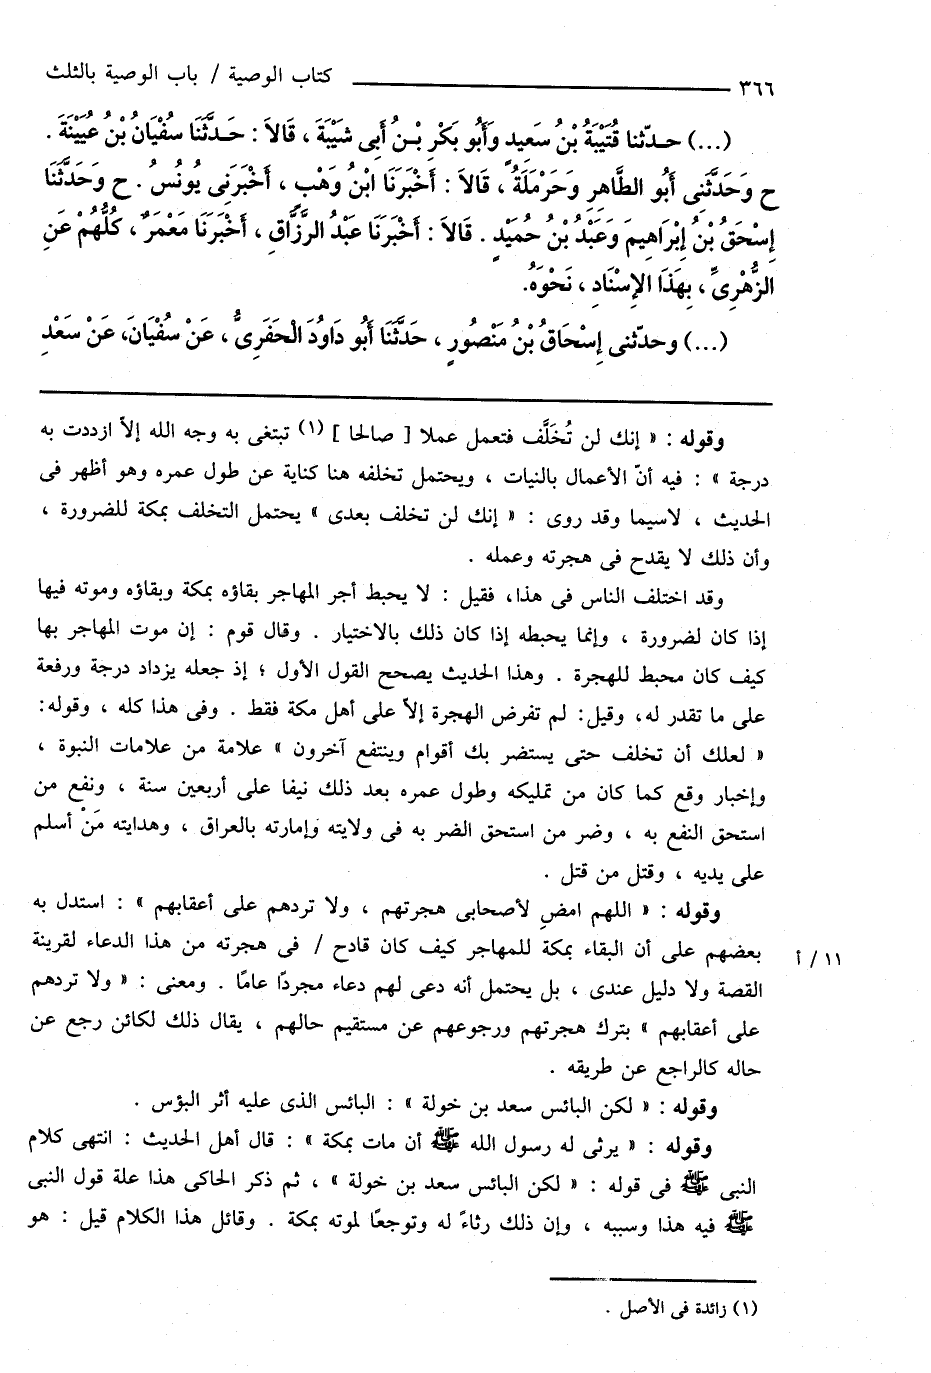 ٣٦٦ كتاب الوصية / باب الوصية بالثلث
(...) حدّثنا قُتَيْبَةُ بْنُ سَعِيدٍ وَأَبُو بَكْرِ بْنُ أَبِى شَيْبَةَ ، قَالاَ : حَدَّثَنَا سُفْيَانُ بْنُ عُيَيْنَةَ .
ح وَحَدَّثَنِى أَبُو الطَّاهِرِ وَحَرْمَلَةُ ، قَالاَ : أَخْبَرَنَا ابْنُ وَهْبٍ ، أَخْبَرَنِى يُونُسُ . ح وَحَدَّثَنَا
إِسْحَقُ بْنُ إِبْرَاهِيمَ وَعَبْدُ بْنُ حُمَيْدٍ . قَالاَ : أَخْبَرَنَا عَبْدُ الرَّزَّاقِ ، أَخْبَرَنَا مَعْمَرٌ ، كُلُّهُمْ عَنِ
الزُّهْرِىِّ ، بِهَذَا الإِسْنَادِ ، نَحْوَهُ.
(...) وحدّثنى إِسْحَاقُ بْنُ مَنْصُورٍ ، حَدَّثَنَا أَبُو دَاوُدَ الْحَفَرِىُّ ، عَنْ سُفْيَانَ، عَنْ سَعْدِ
وقوله : « إنك لن تُخَلَّف فتعمل عملا [ صالحا ] (١) تبتغى به وجه الله إلاّ ازددت به
درجة » : فيه أنّ الأعمال بالنيات ، ويحتمل تخلفه هنا كناية عن طول عمره وهو أظهر فى
الحديث ، لاسيما وقد روى : « إنك لن تخلف بعدى » يحتمل التخلف بمكة للضرورة ،
وأن ذلك لا يقدح فى هجرته وعمله .
وقد اختلف الناس فى هذا، فقيل : لا يحبط أجر المهاجر بقاؤه بمكة وبقاؤه وموته فيها
إذا كان لضرورة ، وإنما يحبطه إذا كان ذلك بالاختيار . وقال قوم : إن موت المهاجر بها
كيف كان محبط للهجرة . وهذا الحديث يصحح القول الأول ؛ إذ جعله يزداد درجة ورفعة
على ما تقدر له، وقيل: لم تفرض الهجرة إلاّ على أهل مكة فقط . وفى هذا كله ، وقوله:
« لعلك أن تخلف حتى يستضر بك أقوام وينتفع آخرون » علامة من علامات النبوة ،
وإخبار وقع كما كان من تمليكه وطول عمره بعد ذلك نيفا على أربعين سنة ، ونفع من
استحق النفع به ، وضر من استحق الضر به فى ولايته وإمارته بالعراق ، وهدايته مَنْ أسلم
على يديه ، وقتل من قتل .
وقوله : « اللهم امضِ لأصحابى هجرتهم ، ولا تردهم على أعقابهم » : استدل به
بعضهم على أن البقاء بمكة للمهاجر كيف كان قادح / فى هجرته من هذا الدعاء لقرينة
١١ / أ
القصة ولا دليل عندى ، بل يحتمل أنه دعى لهم دعاء مجردًا عامًا . ومعنى : « ولا تردهم
على أعقابهم » بترك هجرتهم ورجوعهم عن مستقيم حالهم ، يقال ذلك لكائن رجع عن
حاله كالراجع عن طريقه .
وقوله : « لكن البائس سعد بن خولة » : البائس الذى عليه أثر البؤس .
وقوله : « يرثى له رسول الله ﷺ أن مات بمكة » : قال أهل الحديث : انتهى كلام
النبى ﷺ فى قوله : « لكن البائس سعد بن خولة » ، ثم ذكر الحاكى هذا علة قول النبى
ﷺ فيه هذا وسببه ، وإن ذلك رثاءً له وتوجعًا لموته بمكة . وقائل هذا الكلام قيل : هو
(١) زائدة فى الأصل .